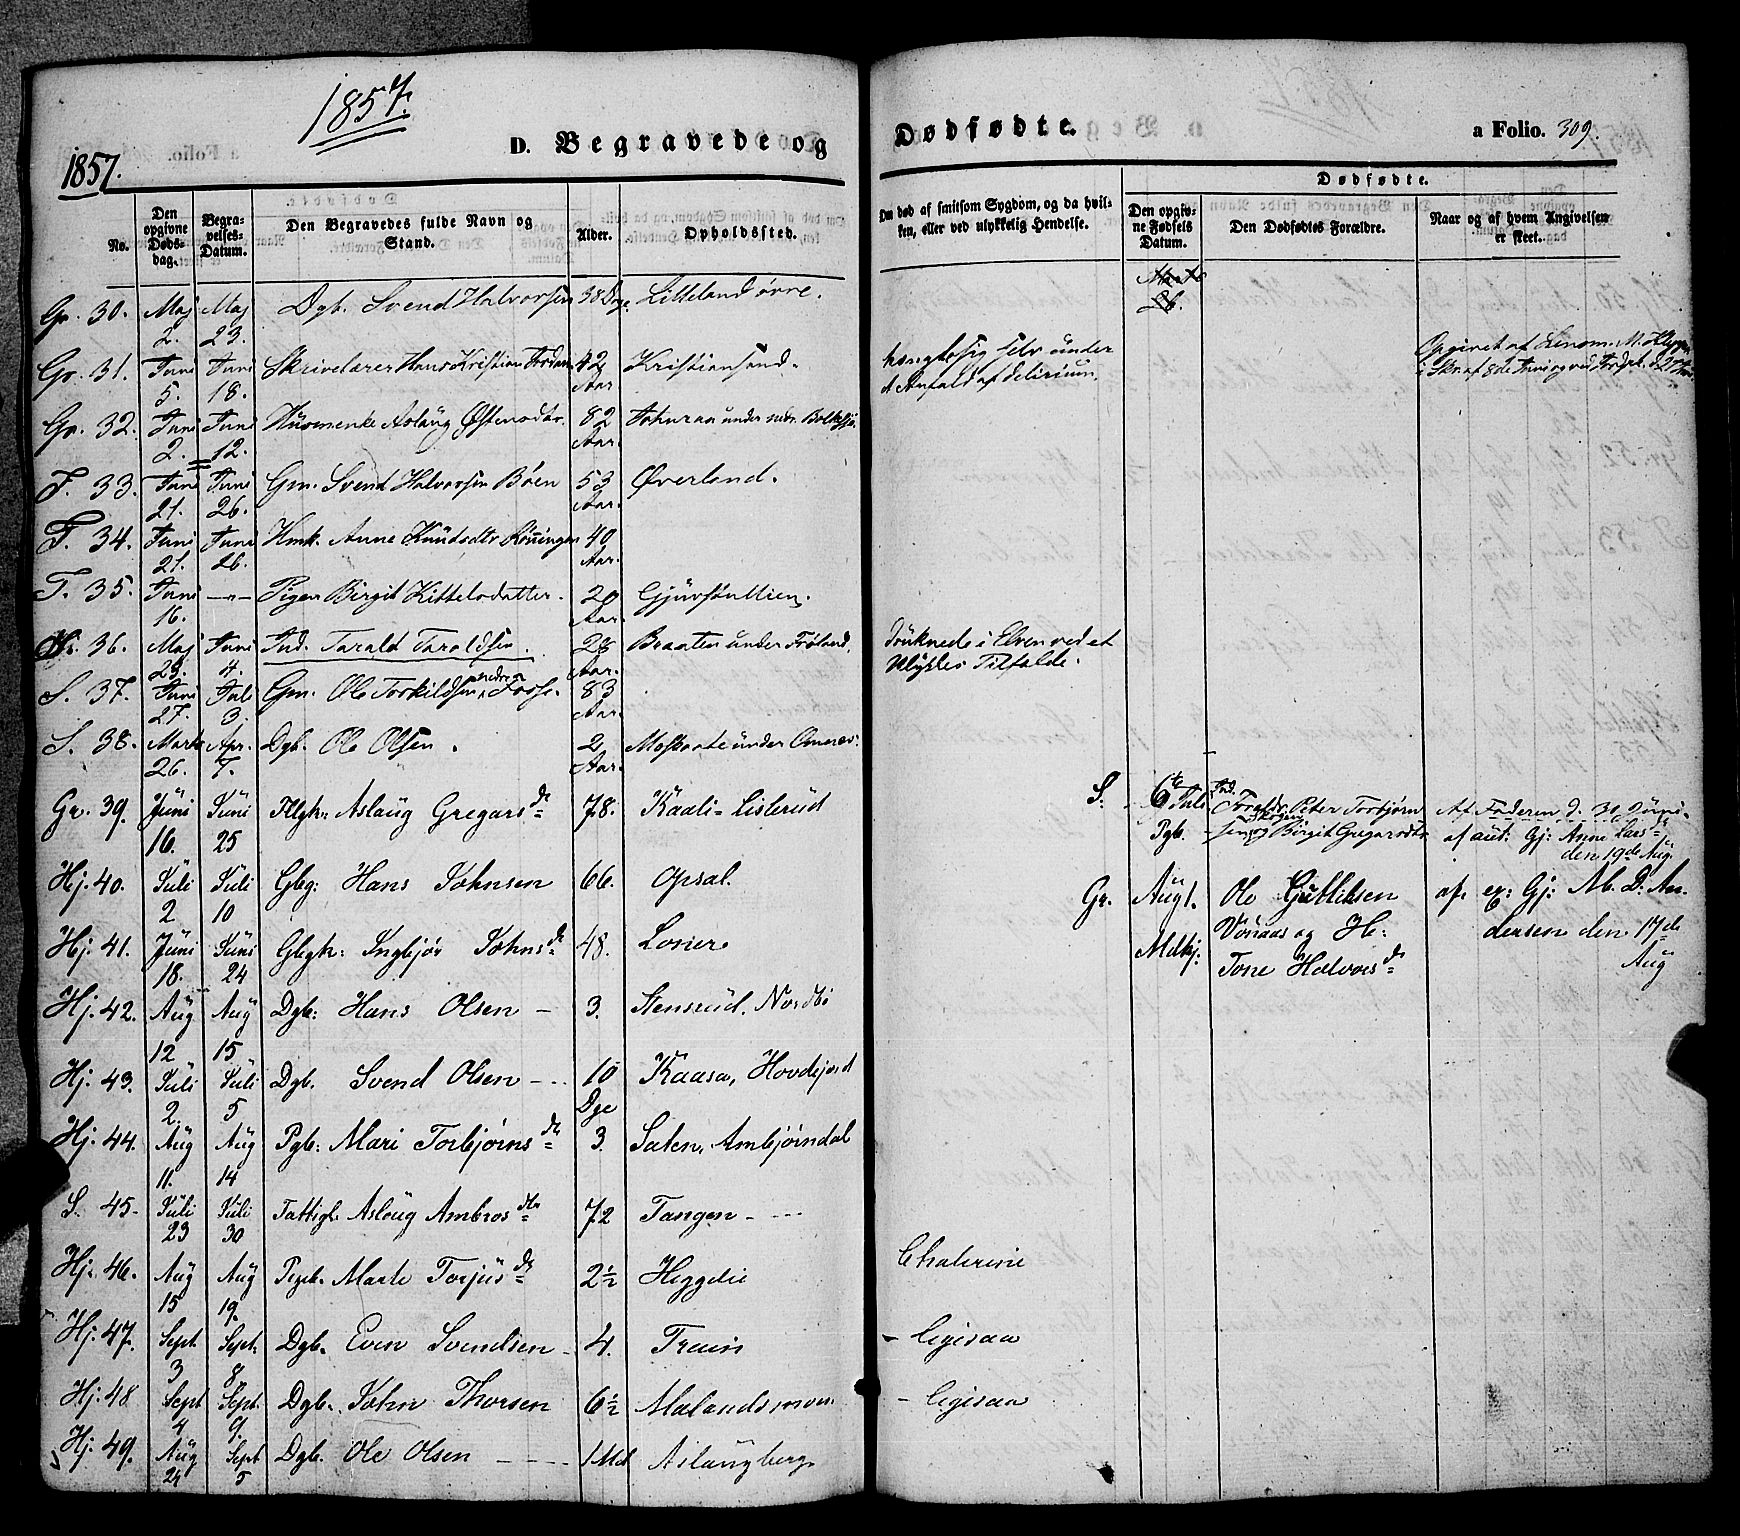 1857.
1857.
D. Begravede og
Dødfødte.
a Folio. 309.
No.
Den opgivne Døds-dag.
Begra-velses-Datum.
Den Begravedes fulde Navn og Stand.
Alder.
Opholdssted.
Om død af smitsom Sygdom, og da hvil-
ken, eller ved ulykkelig Hendelse.
Dødfødte.
Den opgiv-ne Fødsels Datum.
Den Dødfødtes Forældre.
Naar og af hvem Angivelsen er skeet.
Gr. 30. Maj 2. Maj 23. Dgb. Svend Halvorsen 38 Dge. Litteland øvre.
Gr. 31. Juni 5. Juni 18. Skrivelærer Hans Kristian 42 Aar Kristiansand.
hængte sig selv under
et Anfald af delirium.
Gr. 32. Juni 2. Juni 12. Huusmenke Aslaug Østensdtr. 82 Aar. under
F. 33. Juni 21. Juni 26. Gm. Svend Halvorsen Bøen 53 Aar. Øverland.
F. 34. Juni 21. Juni 26. Hmk. Anne Knudsdtr Rønningen 40 Aar.
F. 35. Juni 16. —"— Pigen Birgit Kittelsdatter. 20 Aar.
Hj. 36. Maj 23. Juni 4. Ind. Tarald Taraldsen. 28 Aar. Braaten under Frøland.
Druknede i Elven ved et
Ulykkes Tilfælde.
S. 37. Juni 27. Juli 3. Gm. Ole Torkildsen nedre Fosse. 83 Aar.
S. 38. Marts 26. Apr. 7. Dgb. Ole Olsen. 2 Aar. under
Gr. 39. Juni 16. Juni 25 Aslaug Gregarsdr 78. Kaali-Lislerud
S: 6te Juli Pgb. Peter Torbjørn-
sen og Birgit Gregarsdtr
Af Faderen d. 30 Juni.
af aut: Gj: Anne Larsdr
den 19de Aug.
Hj. 40. Juli 2 Juli 10 Gbg: Hans Johnsen 66. Opsal.
Gr. Aug 1. Mdkj: Ole Gutliksen
Vønaas og He:
Tone Halvorsdr
af ex: Gj: M. D: An-
dersen den 17de
Aug
Hj. 41. Juni 18. Juni 24 Gbgk: Ingbjør Johnsdr 48. Loner
Hj. 42. Aug 12 Aug 15 Dgb: Hans Olsen — 3. Stensrud. Nordbø
Hj. 43. Juli 2. Juli 5 Dgb. Svend Olsen — 10 Dge Kaasa, Hovdejord
Hj. 44. Aug 11. Aug 14 Pgb: Mari Torbjørnsdr 3. Saten, Ambjørndal
S. 45. Juli 23 Juli 30 Fattigl: Aslaug Ambrosdtr 72 Tangen —
Hj. 46. Aug 15 Aug 19. Pgb. Marte Torjusdr 2½ Heggelie
Chalerine
Hj. 47. Sept 3 Sept. 8. Dgb. Even Svendsen — 4. Traain
— ligesaa
Hj. 48 Sept 4 Sept. 9. Dgb. John Thorsen 6½ Mælandsmoen
— ligesaa
Hj. 49. Aug 24 Sept 5 Dgb. Ole Olsen — 1 Md Aslaugberg.